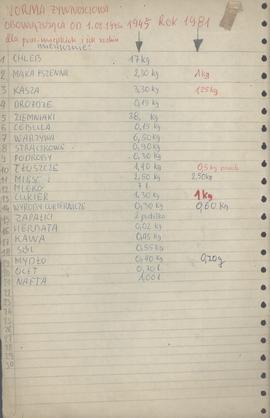 NORMA ŻYWNOŚCIOWA
OBOWIĄZUJĄCA OD 1.08.1945 1945 ROK 1981
dla prac. miejskich i ich rodzin
miesięcznie:
1 CHLEB 17 kg
2 MĄKA PSZENNA 2,30 kg 1 kg
3 KASZA 3,30 kg 1,25 kg
4 DROŻDŻE 0,15 kg
5 ZIEMNIAKI kg
6 CEBULA 0,15 kg
7 WARZYWA 6,50 kg
8 STRĄCZKOWE 0,90 kg
9 PODROBY 0,30 kg
10 TŁUSZCZE 1,40 kg 0,5 kg
11 MIĘSO 2,60 kg 2,50 kg
12 MLEKO 7 l.
13 CUKIER 1 kg
14 WYROBY CUKIERNICZE 0,30 kg 0,60 kg
15 ZAPAŁKI 2 pudełka
16 HERBATA 0,02 kg
17 KAWA 0,25 kg
18 SÓL 0,55 kg
19 MYDŁO 0,40 kg 0,20 g
20 OCET 0,20 l
21 NAFTA 1,00 l